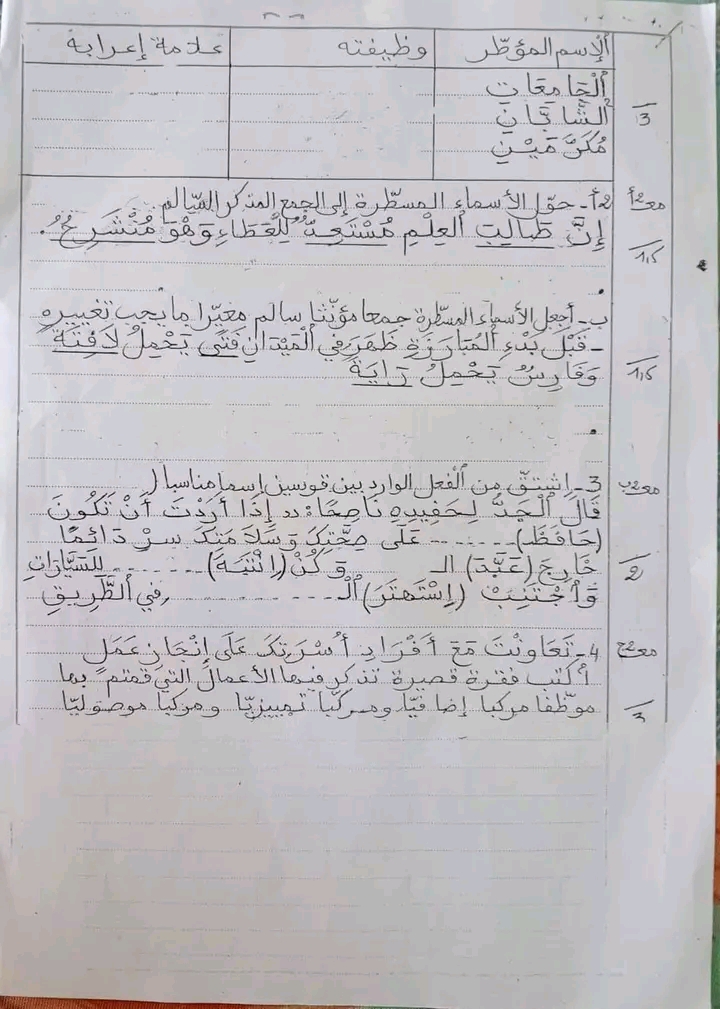 الإسم المؤطّر وظيفته علامة إعرابه
اَلْجَامِعَاتِ
اَلشَّابَّانِ
مُكَرَّمَيْنِ
3
مع2أ
2أ- حوّل الأسماء المسطّرة إلى الجمع المذكر السّالم
إِنَّ طَالِبَ اَلْعِلْمِ مُسْتَعِدٌّ لِلْعَطَاءِ وَهْوَ مُنْشَرِحٌ.
1,5
ب- أجعل الأسماء المسطّرة جمعا مؤنّثا سالم مغيّرا ما يجب تغييره
- قَبْلَ بَدْءِ اَلْمُبَارَزَةِ ظَهَرَ فِي اَلْمَيْدَانِ فَتًى يَحْمِلُ لَافِتَةً
وَفَارِسٌ يَحْمِلُ رَايَةً
1,5
مع2ب
3- اشتقّ من اَلْفعل الوارد بين قوسين اسما مناسبا
قَالَ اَلْجَدُّ لِحَفِيدِهِ نَاصِحًا: « إِذَا أَرَدْتَ أَنْ تَكُونَ
(حَافَظَ) ........ عَلَى صِحَّتِكَ وَسَلَامَتِكَ سِرْ دَائِمًا
خَارِجَ (عَبَّدَ) الـ ........ وَكُنْ (اِنْتَبَهَ) ........ للسَّيَّارَاتِ
وَاُجْتَنِبْ (اِسْتَهْتَرَ) اَلْـ ........ في اَلطَّرِيقِ
2
مع2ج
4- تَعَاوَنْتَ مَعَ أَفْرَادِ أُسْرَتِكَ عَلَى إِنْجَازِ عَمَلٍ
أُكتب فقرة قصيرة تذكر فيها الأعمال التي قمتم بها
موظّفا مركبا إضافيّا ومركّبا تمييزيّا ومركبا موصوليّا
3